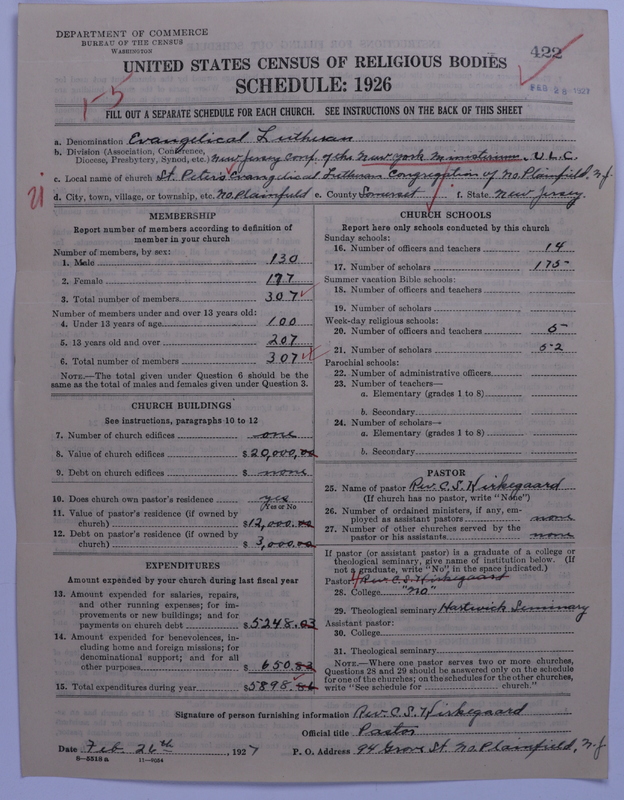 DEPARTMENT OF COMMERCE
BUREAU OF THE CENSUS
WASHINGTON
422
FEB 28 1927
UNITED STATES CENSUS OF RELIGIOUS BODIES
SCHEDULE: 1926
1-5
FILL OUT A SEPARATE SCHEDULE FOR EACH CHURCH. SEE INSTRUCTIONS ON THE BACK OF THIS SHEET
a. Denomination Evangelical Lutheran
b. Division (Association, Conference,
Diocese, Presbytery, Synod, etc.) New Jersey Conf. of the New York Ministerium, U.L.C.
c. Local name of church St. Peter's Evangelical Lutheran Congregation of No. Plainfield, N.J.
d. City, town, village, or township, etc. No. Plainfield e. County Somerset f. State New Jersey.
MEMBERSHIP
Report number of members according to definition of
member in your church
Number of members, by sex:
1. Male 130
2. Female 177
3. Total number of members 307
Number of members under and over 13 years old:
4. Under 13 years of age 100
5. 13 years old and over 207
6. Total number of members 307
NOTE.—The total given under Question 6 should be the
same as the total of males and females given under Question 3.
CHURCH BUILDINGS
See instructions, paragraphs 10 to 12
7. Number of church edifices one
8. Value of church edifices $20,000.00
9. Debt on church edifices $ none
10. Does church own pastor's residence yes
Yes or No
11. Value of pastor's residence (if owned by
church) $12,000.00
12. Debt on pastor's residence (if owned by
church) $ 3,000.00
EXPENDITURES
Amount expended by your church during last fiscal year
13. Amount expended for salaries, repairs,
and other running expenses; for im-
provements or new buildings; and for
payments on church debt $5248.03
14. Amount expended for benevolences, in-
cluding home and foreign missions; for
denominational support; and for all
other purposes $ 650.83
15. Total expenditures during year $5898.86
CHURCH SCHOOLS
Report here only schools conducted by this church
Sunday schools:
16. Number of officers and teachers 14
17. Number of scholars 175
Summer vacation Bible schools:
18. Number of officers and teachers
19. Number of scholars
Week-day religious schools:
20. Number of officers and teachers 5
21. Number of scholars 52
Parochial schools:
22. Number of administrative officers
23. Number of teachers—
a. Elementary (grades 1 to 8)
b. Secondary
24. Number of scholars—
a. Elementary (grades 1 to 8)
b. Secondary
PASTOR
25. Name of pastor Rev. C. S. Kirkegaard
(If church has no pastor, write "None")
26. Number of ordained ministers, if any, em-
ployed as assistant pastors none
27. Number of other churches served by the
pastor or his assistants none
If pastor (or assistant pastor) is a graduate of a college or
theological seminary, give name of institution below. (If
not a graduate, write "No" in the space indicated.)
Pastor: Rev. C. S. Kirkegaard
28. College "no"
29. Theological seminary Hartwick Seminary
Assistant pastor:
30. College
31. Theological seminary
NOTE.—Where one pastor serves two or more churches,
Questions 28 and 29 should be answered only on the schedule
for one of the churches; on the schedules for the other churches,
write "See schedule for church."
Signature of person furnishing information Rev. C. S. Kirkegaard
Official title Pastor
Date Feb. 26th, 1927 P. O. Address 94 Grove St. No. Plainfield, N.J.
8—5518 a 11—9054